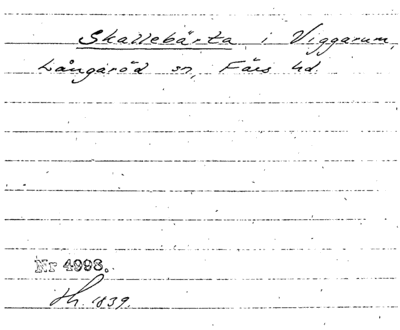 Skallebärta i Viggarum,
Långaröd sn, Färs hd.
Nr 4998.
Th. 1839.